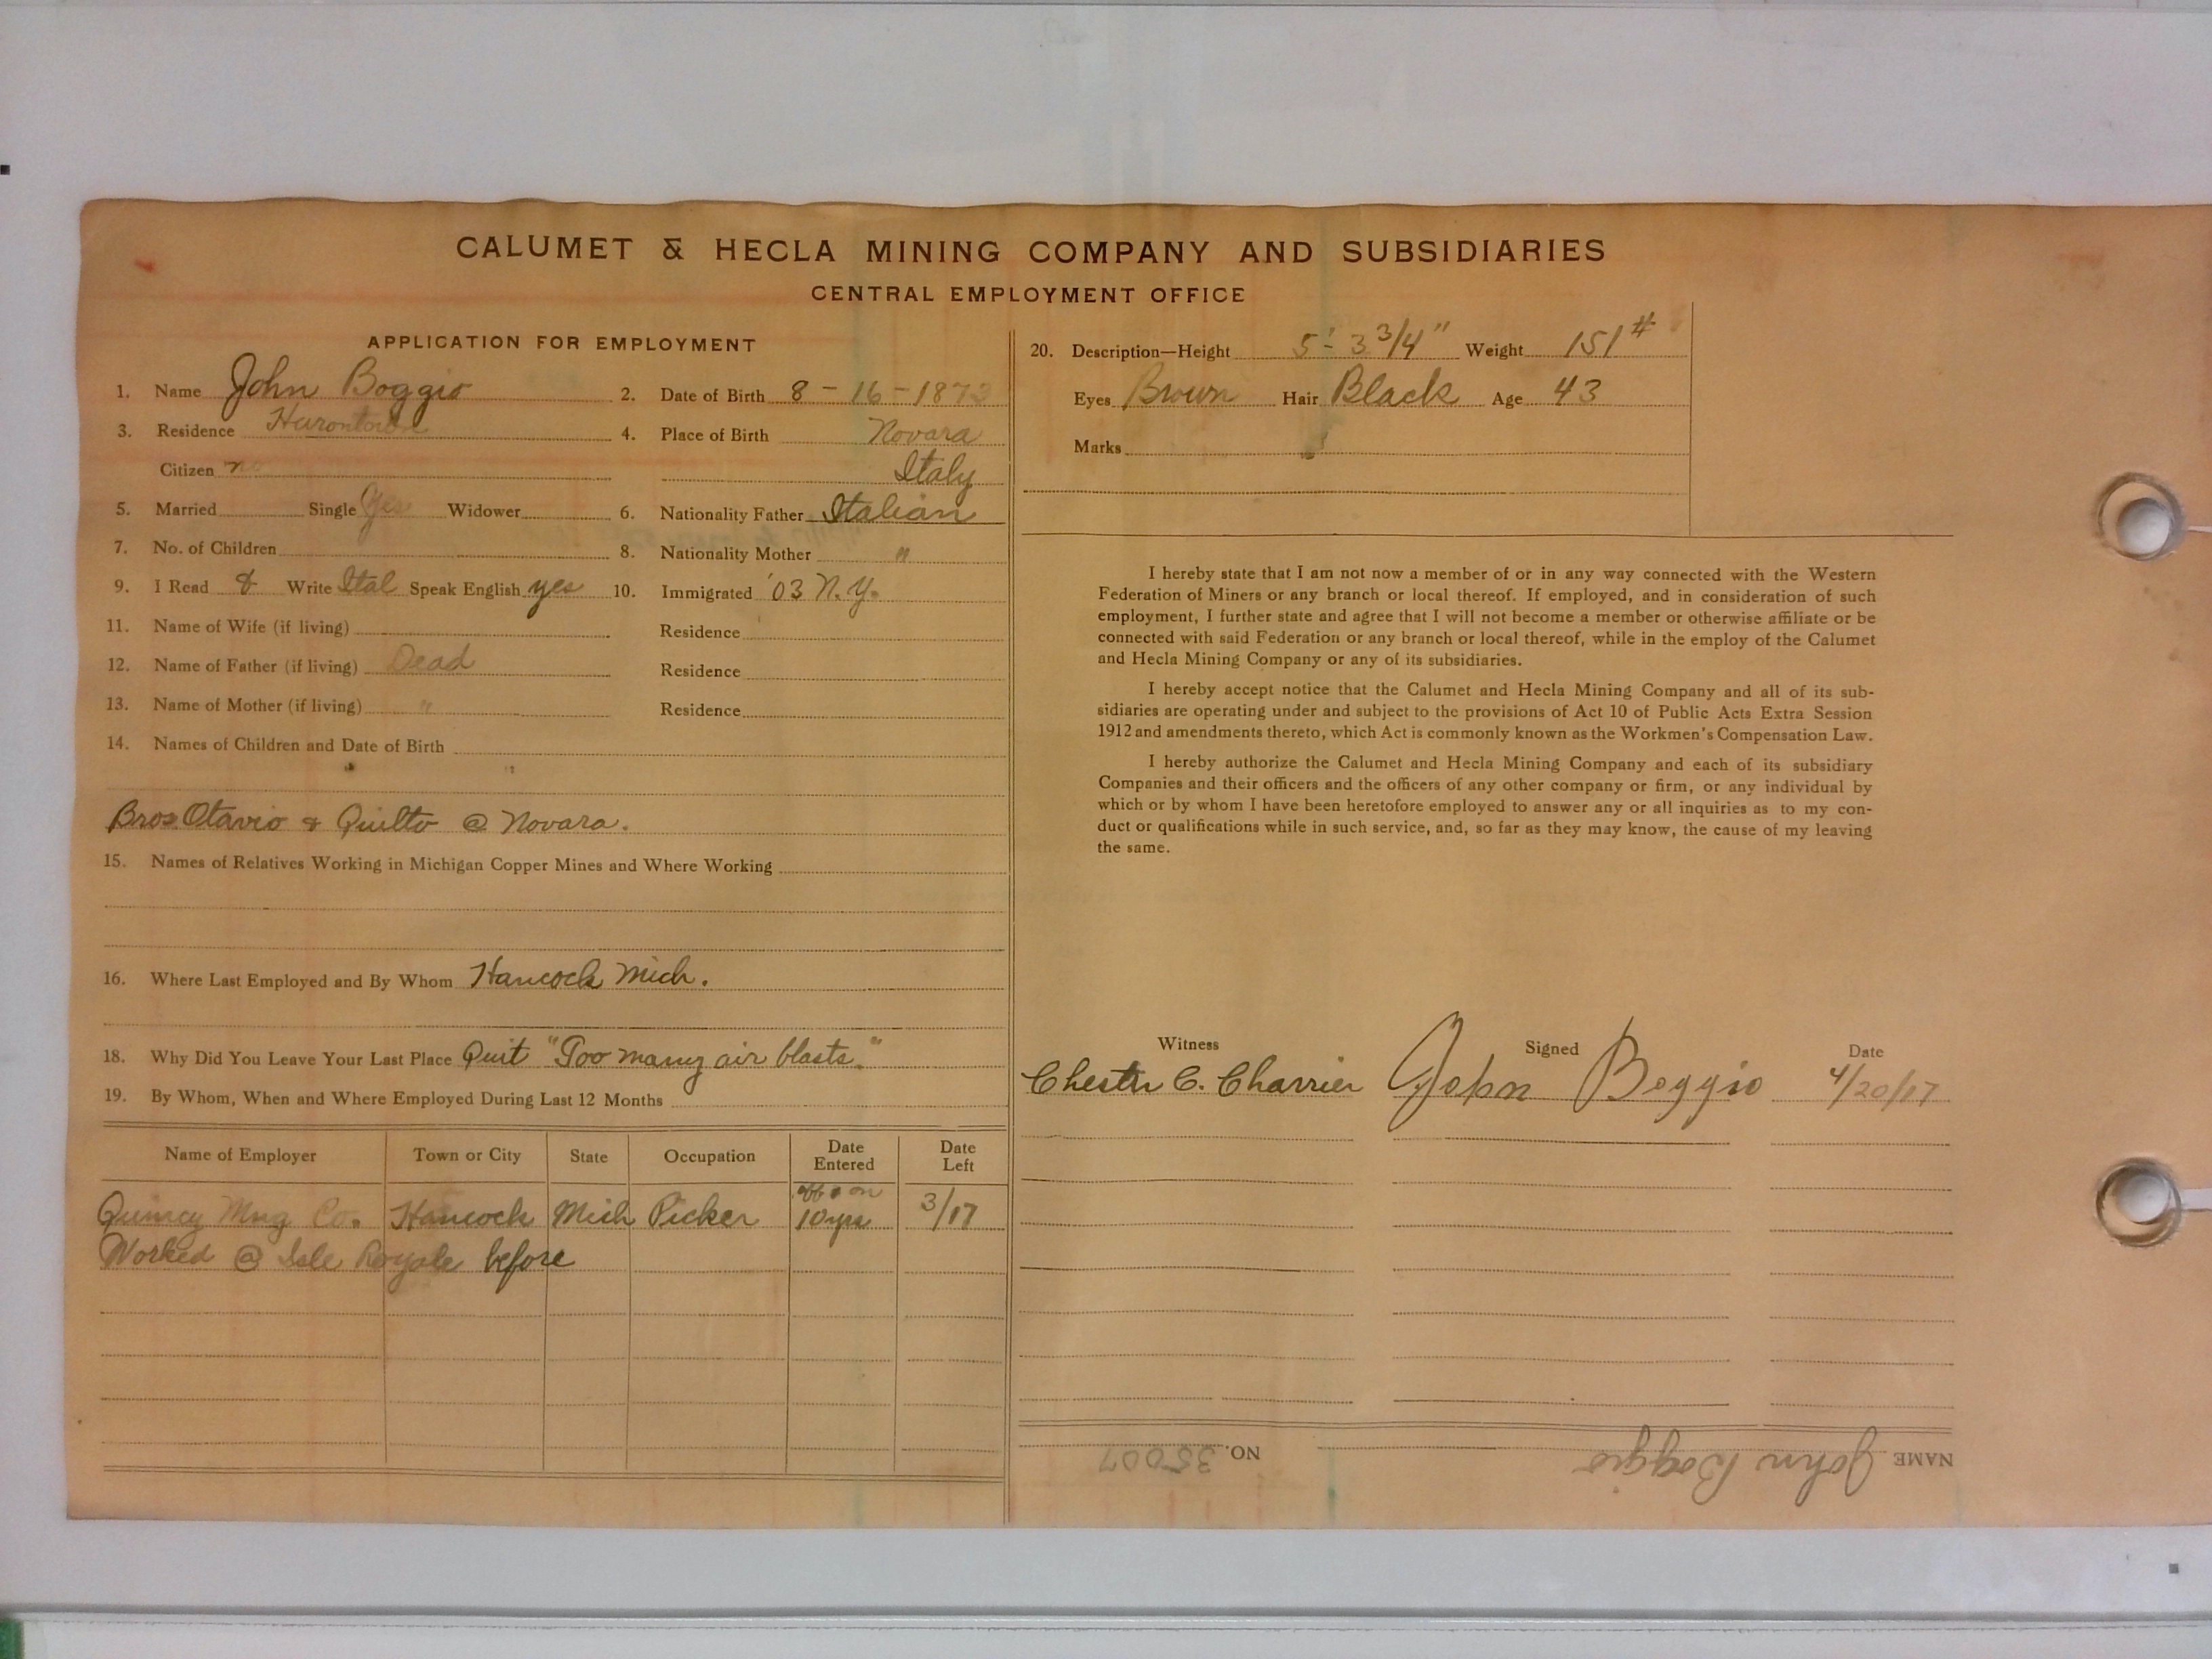 CALUMET & HECLA MINING COMPANY AND SUBSIDIARIES
CENTRAL EMPLOYMENT OFFICE
APPLICATION FOR EMPLOYMENT
1. Name John Boggio 2. Date of Birth 8 - 16 - 1873
3. Residence Hurontown 4. Place of Birth Novara
Citizen no Italy
5. Married Single Yes Widower 6. Nationality Father Italian
7. No. of Children 8. Nationality Mother "
9. I Read & Write Ital Speak English yes 10. Immigrated '03 N.Y.
11. Name of Wife (if living) Residence
12. Name of Father (if living) Dead Residence
13. Name of Mother (if living) " Residence
14. Names of Children and Date of Birth
Bros. Otavio & Quilto @ Novara.
15. Names of Relatives Working in Michigan Copper Mines and Where Working
16. Where Last Employed and By Whom Hancock Mich.
18. Why Did You Leave Your Last Place Quit "Too many air blasts."
19. By Whom, When and Where Employed During Last 12 Months
Name of Employer Town or City State Occupation Date Entered Date Left
Quincy Mng Co. Hancock Mich Picker off & on 10 yrs 3/17
Worked @ Isle Royale before
20. Description—Height 5'- 3 3/4" Weight 151#
Eyes Brown Hair Black Age 43
Marks
I hereby state that I am not now a member of or in any way connected with the Western
Federation of Miners or any branch or local thereof. If employed, and in consideration of such
employment, I further state and agree that I will not become a member or otherwise affiliate or be
connected with said Federation or any branch or local thereof, while in the employ of the Calumet
and Hecla Mining Company or any of its subsidiaries.
I hereby accept notice that the Calumet and Hecla Mining Company and all of its sub-
sidiaries are operating under and subject to the provisions of Act 10 of Public Acts Extra Session
1912 and amendments thereto, which Act is commonly known as the Workmen's Compensation Law.
I hereby authorize the Calumet and Hecla Mining Company and each of its subsidiary
Companies and their officers and the officers of any other company or firm, or any individual by
which or by whom I have been heretofore employed to answer any or all inquiries as to my con-
duct or qualifications while in such service, and, so far as they may know, the cause of my leaving
the same.
Witness Signed Date
Chester C. Charrier John Boggio 4/20/17
NAME John Boggio NO. 35007